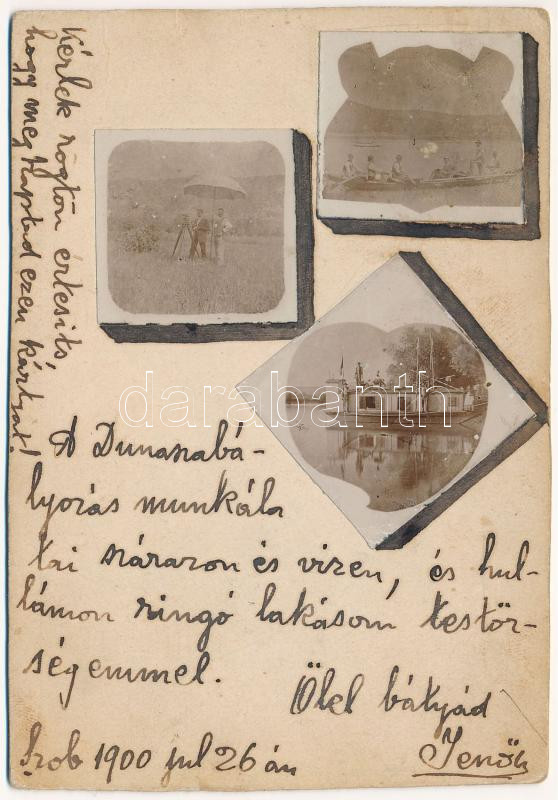 Kérlek rögtön értesits,
hogy meg kaptad ezen kártyát!
A Dunaszabá-
lyozás munkála
tai szárazon és vizen, és hul-
lámon ringó lakásom testőr-
ségemmel.
Ölel bátyád
Jenő
Szob 1900 jul 26 án
darabanth